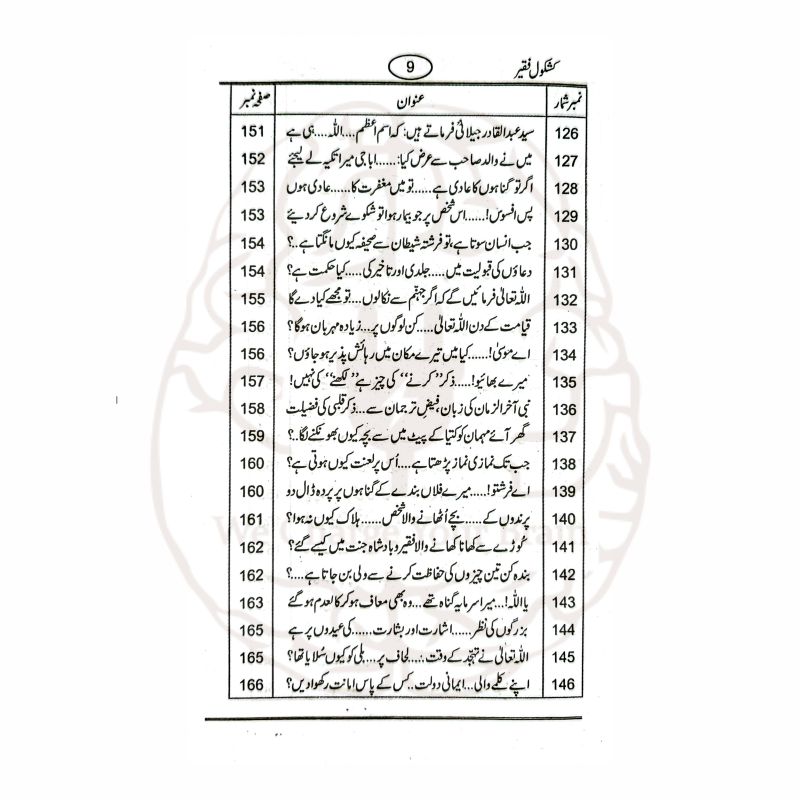 کشکول فقیر 9
نمبر شمار عنوان صفحہ نمبر
126 سید عبدالقادر جیلانیؒ فرماتے ہیں: کہ اسم اعظم....اللہ....ہی ہے 151
127 میں نے والد صاحب سے عرض کیا:......ابا جی میرا تکیہ لے لیجئے 152
128 اگر تو گناہوں کا عادی ہے.....تو میں مغفرت کا......عادی ہوں 153
129 پس افسوس!......اس شخص پر جو بیمار ہوا تو شکوے شروع کر دیئے 153
130 جب انسان سوتا ہے، تو فرشتہ شیطان سے صحیفہ کیوں مانگتا ہے..؟ 154
131 دعاؤں کی قبولیت میں.....جلدی اور تاخیر کی.....کیا حکمت ہے؟ 154
132 اللہ تعالیٰ فرمائیں گے کہ اگر جہنم سے نکالوں...تو مجھے کیا دے گا 155
133 قیامت کے دن اللہ تعالیٰ.....کن لوگوں پر...زیادہ مہربان ہوگا؟ 156
134 اے موسیٰ!......کیا میں تیرے مکان میں رہائش پذیر ہو جاؤں؟ 156
135 میرے بھائیو!.....ذکر ’’کرنے‘‘ کی چیز ہے ’’لکھنے‘‘ کی نہیں! 157
136 نبی آخر الزمان کی زبان، فیض ترجمان سے...ذکر قلبی کی فضیلت 158
137 گھر آئے مہمان کو کتیا کے پیٹ میں سے بچہ کیوں بھونکنے لگا..؟ 159
138 جب تک نمازی نماز پڑھتا ہے....اُس پر لعنت کیوں ہوتی ہے؟ 160
139 اے فرشتو!.....میرے فلاں بندے کے گناہوں پر پردہ ڈال دو 160
140 پرندوں کے.....بچے اُٹھانے والا شخص......ہلاک کیوں نہ ہوا؟ 161
141 کُوڑے سے کھانا کھانے والا فقیر و بادشاہ جنت میں کیسے گئے؟ 162
142 بندہ کن تین چیزوں کی حفاظت کرنے سے ولی بن جاتا ہے....؟ 162
143 یا اللہ!...میرا سرمایہ گناہ تھے...وہ بھی معاف ہو کر کالعدم ہو گئے 163
144 بزرگوں کی نظر......اشارت اور بشارت......کی عیدوں پر ہے 165
145 اللہ تعالیٰ نے تہجد کے وقت....لحاف پر...بلی کو کیوں سُلایا تھا؟ 165
146 اپنے کلمے والی...ایمانی دولت..کس کے پاس امانت رکھوا دیں؟ 166